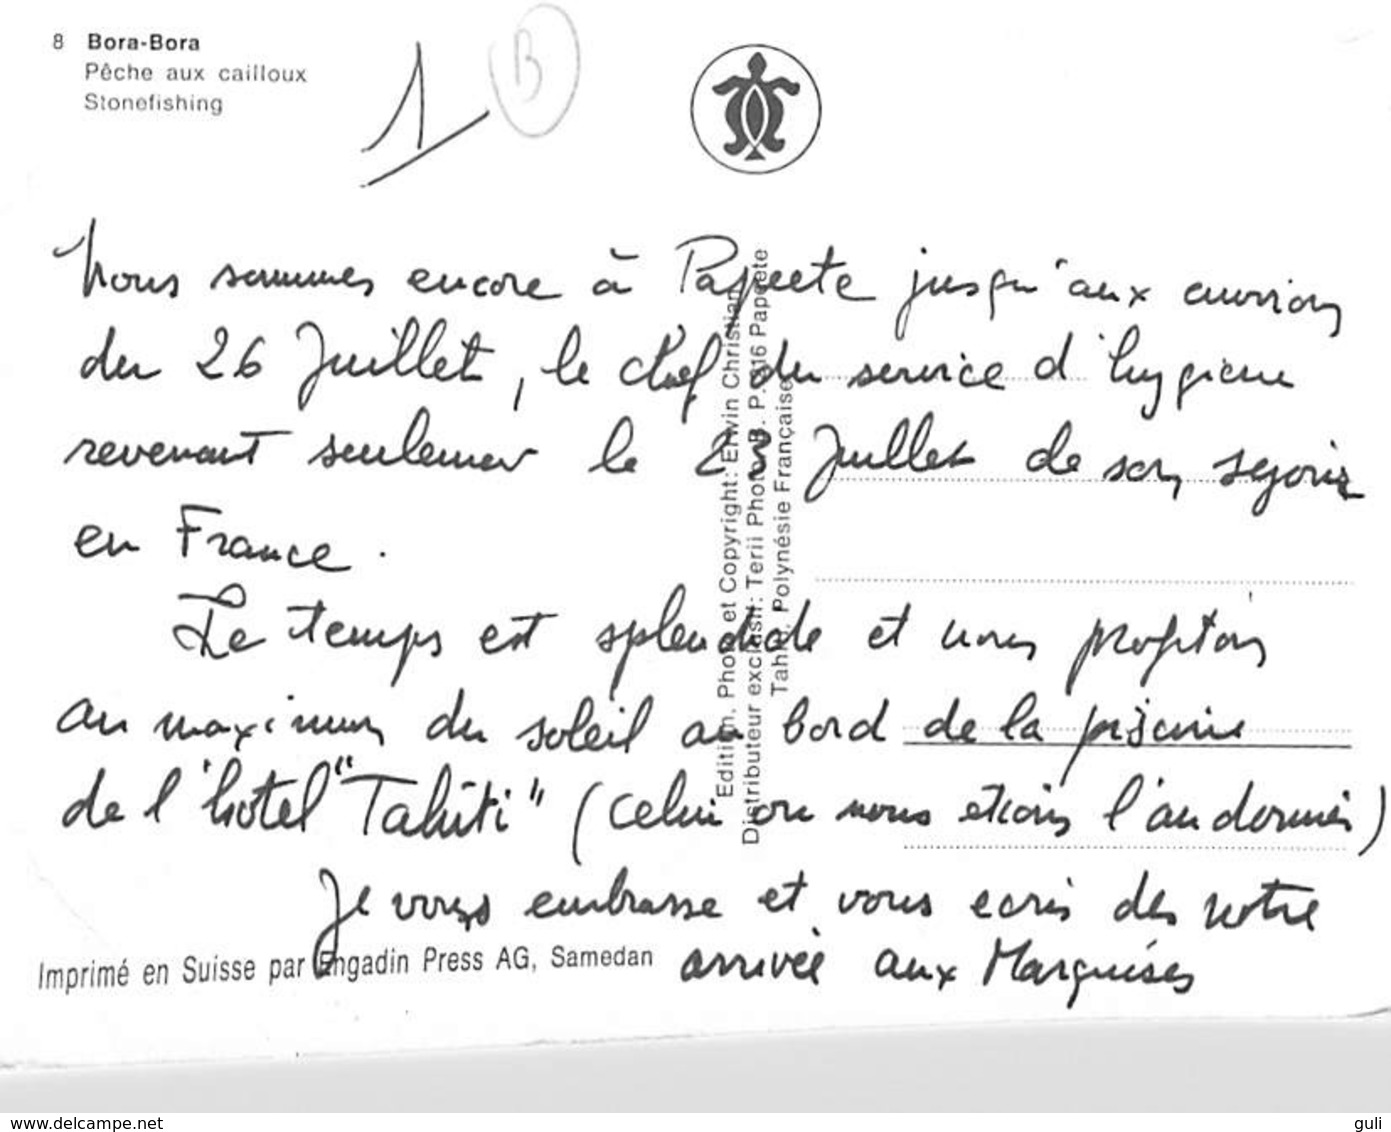 8 Bora-Bora
Pêche aux cailloux
Stonefishing
1
B
Nous sommes encore à Papeete jusqu'aux environs
du 26 Juillet, le chef du service d'hygiene
revenant seulement le 23 Juillet de son sejour
en France.
Le temps est splendide et nous profitons
au maximum du soleil au bord de la piscine
de l'hôtel "Tahiti" (celui ou nous etions l'an dernier)
Je vous embrasse et vous ecris des notre
arrivée aux Marquises
Edition, Photo et Copyright: Erwin Christian
Distributeur exclusif: Terii Photo B. P. 316 Papeete
Tahiti Polynésie Française
Imprimé en Suisse par Engadin Press AG, Samedan
www.delcampe.net
guli